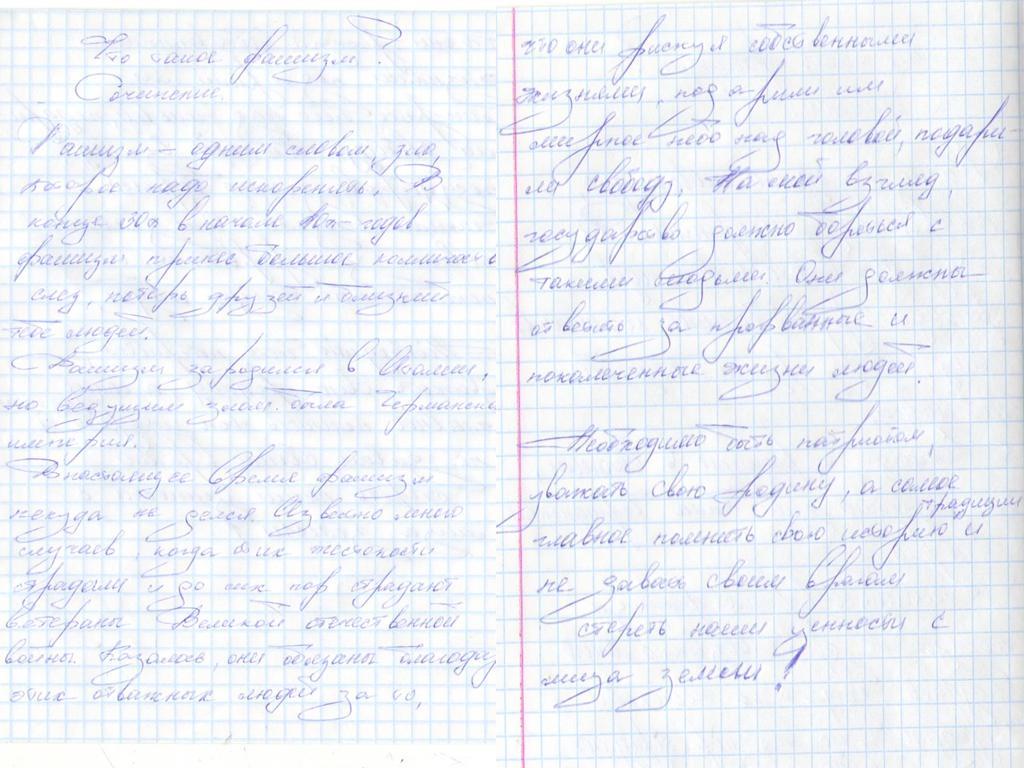 Что такое фашизм?
Сочинение.
Фашизм – одним словом, зло,
которое надо искоренить. В
конце 30х в начале 40х-годов
фашизм принес большое количество
слёз, потерь друзей и близких
людей.
Фашизм зародился в Италии,
но ведущим злом была Германская
империя.
В настоящее время фашизм
некуда не делся. Известно много
случаев, когда от их жестокости
страдали и до сих пор страдают
ветераны Великой отечественной
войны. Казалось, они обязаны благодар
этих отважных людей за то,
что они рискуя собственными
жизнями, подарили им
мирное небо над головой, подари-
ли свободу. На мой взгляд,
государство должно бороться с
такими людьми. Они должны
ответить за прорванные и
покалеченные жизни людей.
Необходимо быть патриотом,
уважать свою родину, а самое
традиции
главное помнить свою историю и
не давать своим врагам
стереть наши ценности с
лица земли!